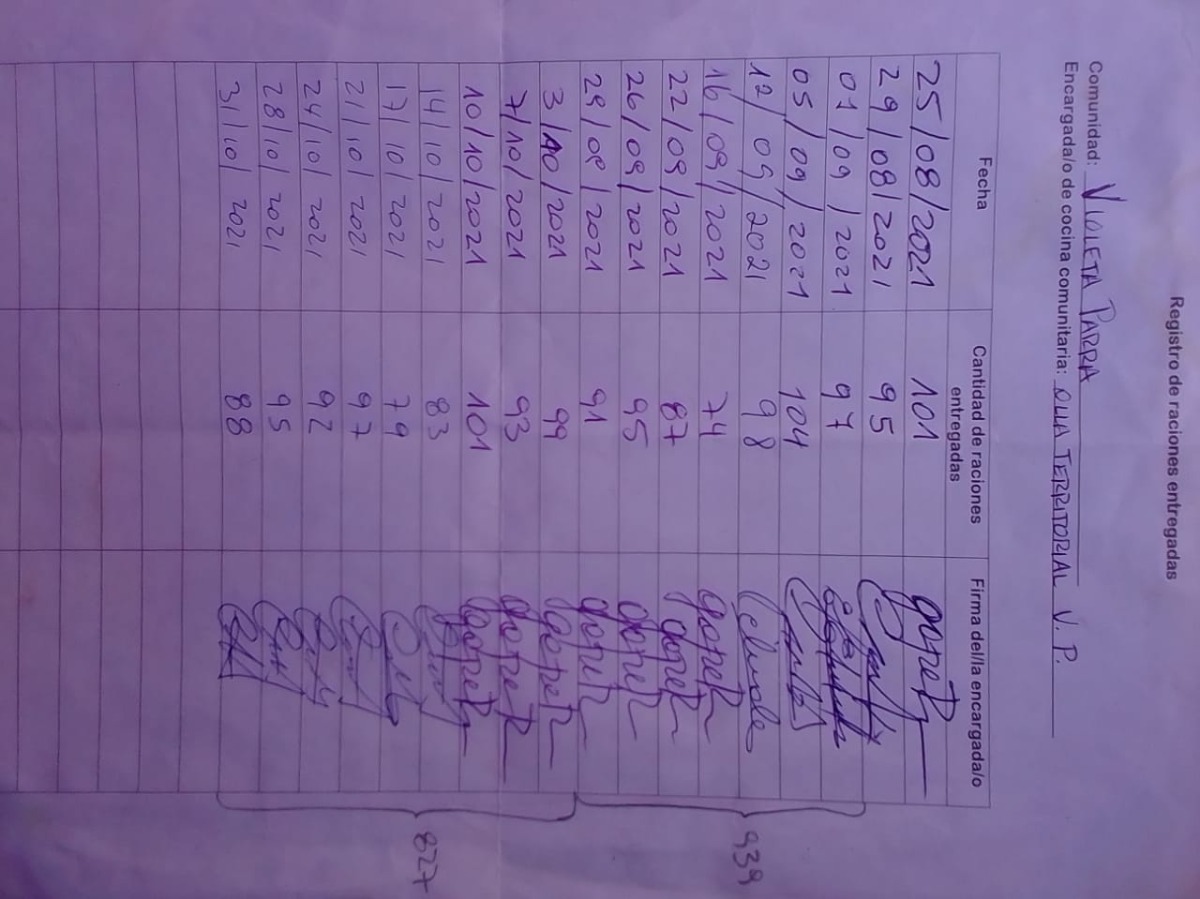 Registro de raciones entregadas
Comunidad: VIOLETA PARRA
Encargada/o de cocina comunitaria: OLLA TERRITORIAL V. P.
Fecha Cantidad de raciones entregadas Firma del/la encargada/o
25/08/2021 101
29/08/2021 95
01/09/2021 97
05/09/2021 104
12/09/2021 98
16/09/2021 74
22/09/2021 87
26/09/2021 95
29/09/2021 91
939
3/10/2021 99
7/10/2021 93
10/10/2021 101
14/10/2021 83
17/10/2021 79
21/10/2021 97
24/10/2021 92
28/10/2021 95
31/10/2021 88
827